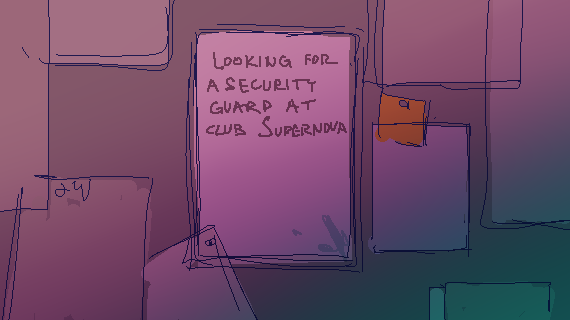 LOOKING FOR
A SECURITY
GUARD AT
CLUB SUPERNOVA